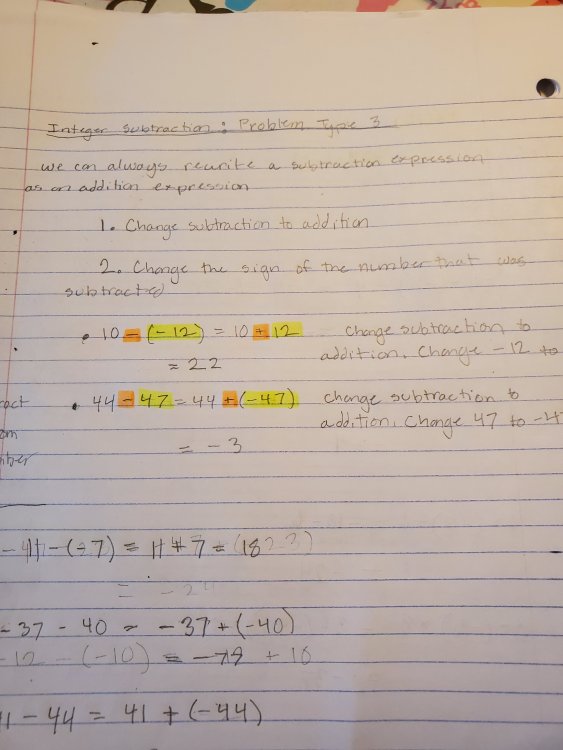 Integer Subtraction : Problem Type 3
we can always rewrite a subtraction expression
as an addition expression
1. Change subtraction to addition
2. Change the sign of the number that was
subtracted
• 10 - (-12) = 10 + 12 Change subtraction to
= 22 addition. Change -12 to
• 44 - 47 = 44 + (-47) Change subtraction to
addition. Change 47 to -4
= -3
- (-7) = 11 + 7 = (18
= - 24
-37 - 40 = -37 + (-40)
-12 - (-10) = + 10
41 + (-44)